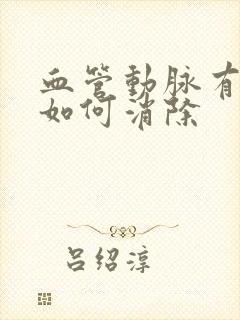 血管動脉有
如何消除
吕绍淳